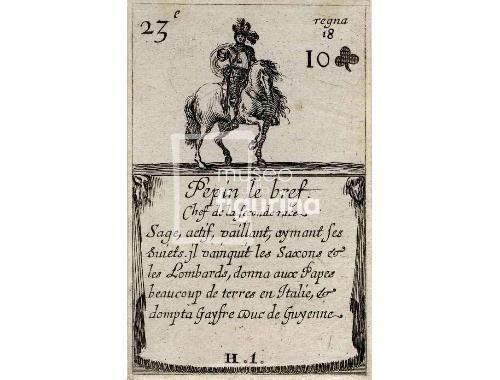 23e
regna
18
10
museo
figurina
Pepin le bref
Chef de la seconde race
Sage, actif, vaillant, aymant ses
suiets. Jl vainquit les Saxons &
les Lombards, donna aux Papes
beaucoup de terres en Italie, &
dompta Gayfre Duc de Guyenne
H.1.